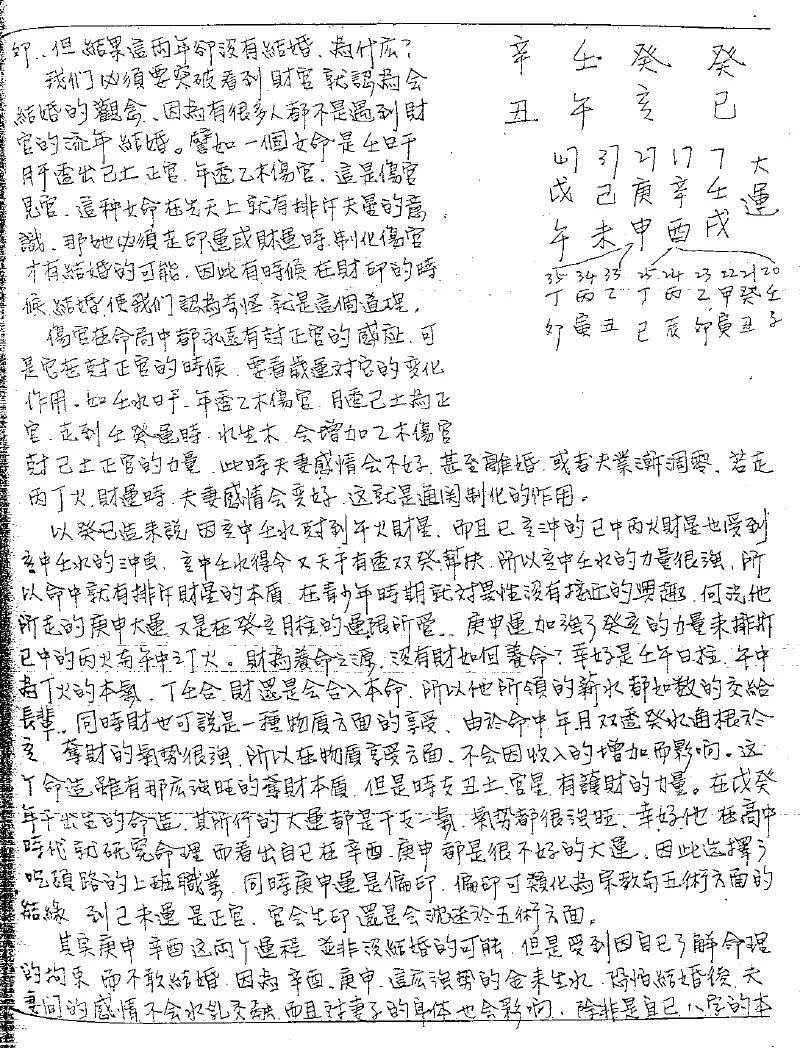 卯..但結果這兩年卻沒有結婚、為什庅?
我们必須要突破看到財官就認為会
結婚的觀念、因為有很多人都不是遇到財
官的流年結婚。譬如一個女命是壬日干
月干透出己土正官、年透乙木傷官、這是傷官
見官、這种女命在先天上就有排斥夫星的意
識、那她必須走印運或財運時、制化傷官
才有結婚的可能、因此有時候在財印的時
候結婚使我們認為奇怪就是這個道理。
傷官在命局中都永遠有尅正官的感应、可
是它在尅正官的時候、要看歲運对官的变化
作用、如壬水日干、年透乙木傷官、月透己土為正
官、走到壬癸運時、水生木、会增加乙木傷官
辛 壬 癸 癸
丑 午 亥 巳
47 37 27 17 7 大運
戊 己 庚 辛 壬
午 未 申 酉 戌
35 34 33 25 24 23 22 21 20
丁 丙 乙 丁 丙 乙 甲 癸 壬
卯 寅 丑 巳 辰 卯 寅 丑 子
尅己土正官的力量、此時夫妻感情会不好、甚至離婚、或者夫業漸凋零、若走
丙丁火、財運時、夫妻感情会变好、这就是通関制化的作用。
以癸巳造来說、因亥中壬水尅到午火財星、而且巳亥沖的巳中丙火財星也受到
亥中壬水的沖尅、亥中壬水得令又天干有透双癸幫扶、所以亥中壬水的力量很強、所
以命中就有排斥財星的本質、在青少年時期就对異性沒有接近的興趣、何況他
所走的庚申大運、又是在癸亥月柱的運限所管..庚申運加強了癸亥的力量来排斥
巳中的丙火與午中之丁火。財為養命之源、沒有財如何養命?幸好是壬午日柱、午中
為丁火的本氣、丁壬合、財還是会合入本命、所以他所領的薪水都如数的交給
長輩..同時財也可說是一種物质方面的享受、由於命中年月双透癸水通根於
亥、奪財的氣势很強、所以在物质享受方面、不会因收入的增加而影响。这
个命造雖有那庅強旺的奪財本质、但是時支丑土、官星、有護財的力量。在戊癸
年干出生的命造、其所行的大運都是干支一氣、氣势都很強旺、幸好他在高中
時代就研究命理而看出自己在辛酉、庚申都是很不好的大運、因此选擇了
吃頭路的上班職業、同時庚申運是偏印、偏印可類化為宗教與五術方面的
結緣、到己未運是正官、官会生印還是会沈迷於五術方面。
其实庚申、辛酉这兩个運程、並非沒結婚的可能、但是受到因自己了解命理
的拘束而不敢結婚、因為辛酉、庚申、這庅強势的金来生水、恐怕結婚後、夫
妻间的感情不会水乳交融、而且对妻子的身体也会影响、除非是自己八字的本